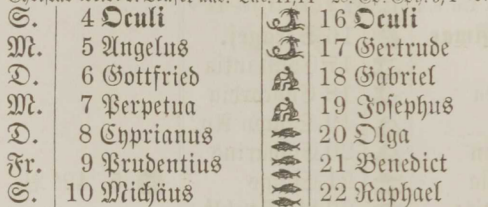 S. 4 Oculi 16 Oculi
M. 5 Angelus 17 Gertrude
D. 6 Gottfried 18 Gabriel
M. 7 Perpetua 19 Josephus
D. 8 Cyprianus 20 Olga
Fr. 9 Prudentius 21 Benedict
S. 10 Michäus 22 Raphael